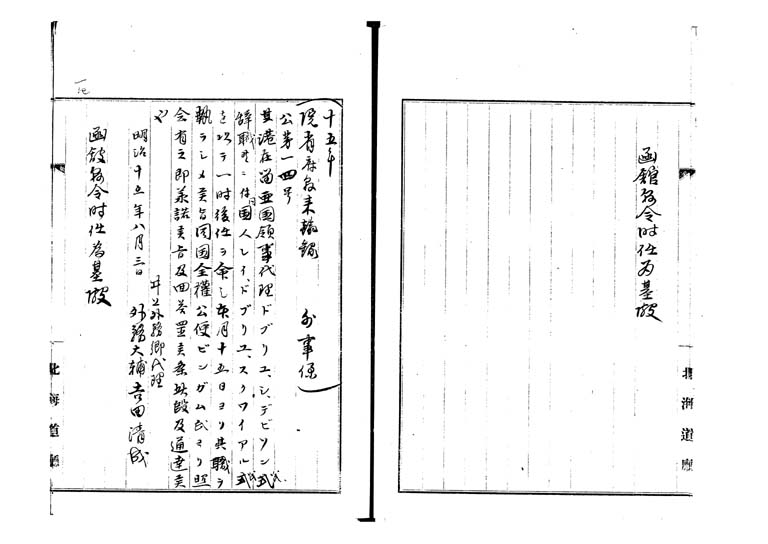 函館縣令時任為基殿
北海道廳
十五年
院省府縣来翰録 外事係
公第一四号
其港在留亜国領事代理ドブリユ、シ、デビソン氏
辞職ニ付同国人レイ、ドブリユ、スクワイアル氏
ヲ以テ一時後任ヲ命シ本月十五日ヨリ其職ヲ
執ラシメ候旨同國全權公使ビンガム氏ヨリ照
会有之即承諾候旨及回答置候条此段及通達候
也
明治十五年八月三日
井上外務卿代理
外務大輔吉田清成
函館縣令時任為基殿
北海道廳